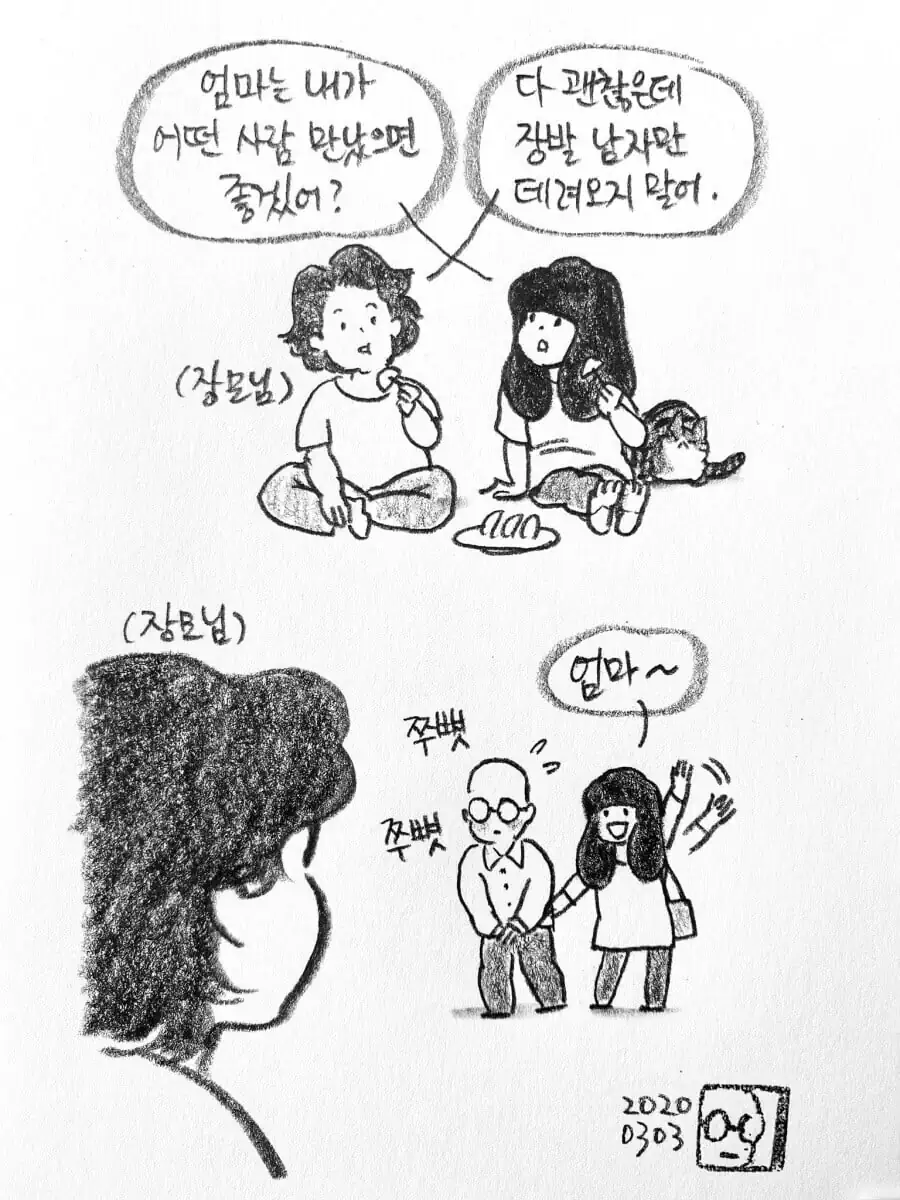 엄마는 내가
어떤 사람 만났으면
좋겠어?
다 괜찮은데
장발 남자만
데려오지 말어.
(장모님)
(장모님)
엄마~
쭈뼛
쭈뼛
2020
0303